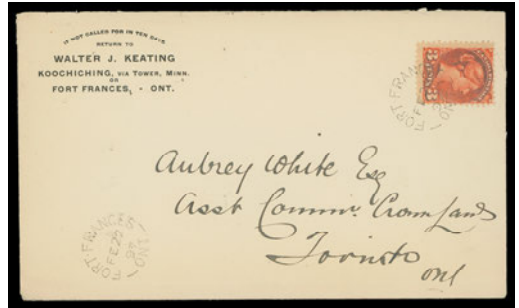 IF NOT CALLED FOR IN TEN DAYS
RETURN TO
WALTER J. KEATING
KOOCHICHING, VIA TOWER, MINN.
OR
FORT FRANCES, - ONT.
3 3
FORT FRANCES
ONT
Aubrey White Esq
Asst Commr. Crown Lands
Toronto
Ont
FORT FRANCES
FE 20
ONT